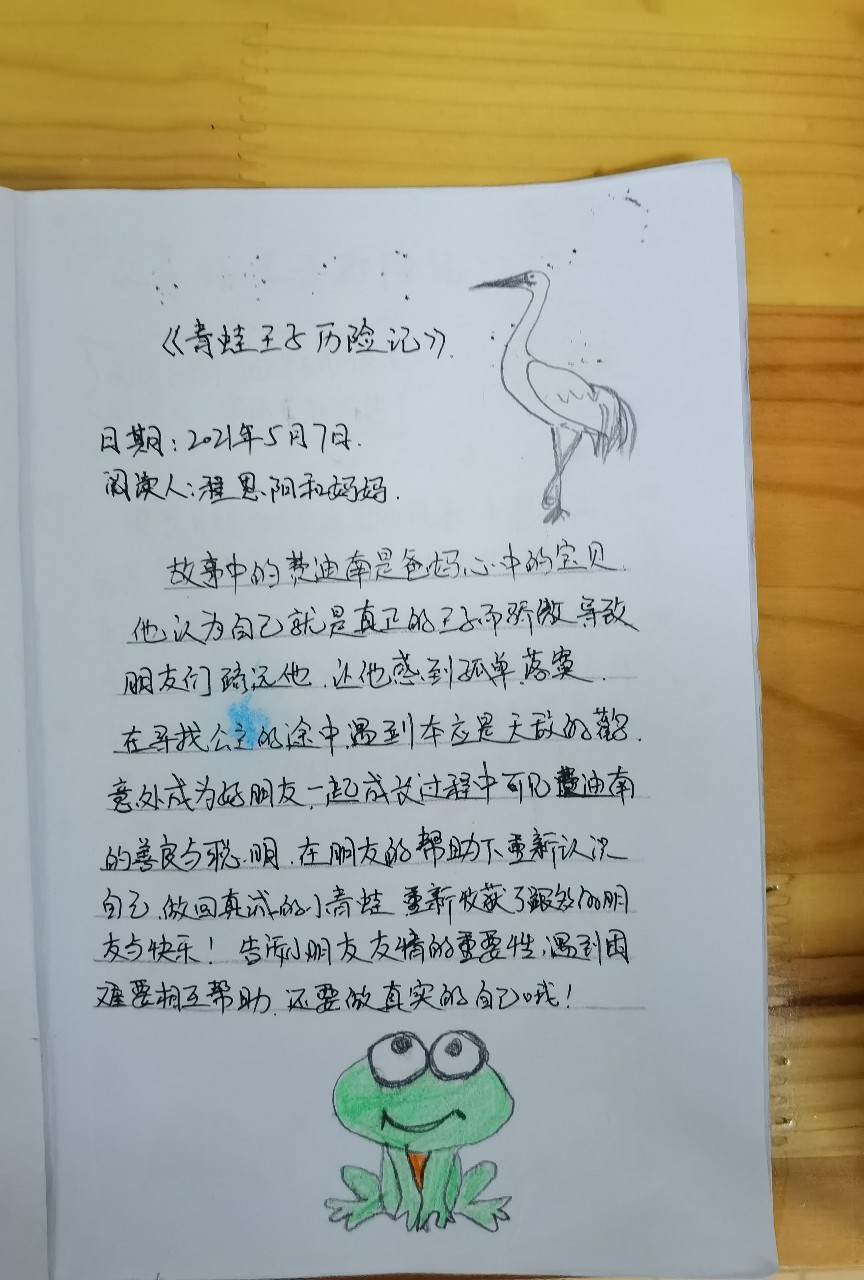 《青蛙王子历险记》.
日期:2021年5月7日.
阅读人:程思阳和妈妈.
故事中的费迪南是爸妈心中的宝贝.
他认为自己就是真正的王子而骄傲导致
朋友们疏远他.让他感到孤单.落寞.
在寻找公主的途中.遇到本应是天敌的鹳.
意外成为好朋友,一起成长过程中可见费迪南
的善良与聪明.在朋友的帮助下重新认识
自己.做回真诚的小青蛙 重新收获了的朋
友与快乐!告诉小朋友友情的重要性,遇到困
难要相互帮助.还要做真实的自己哦!